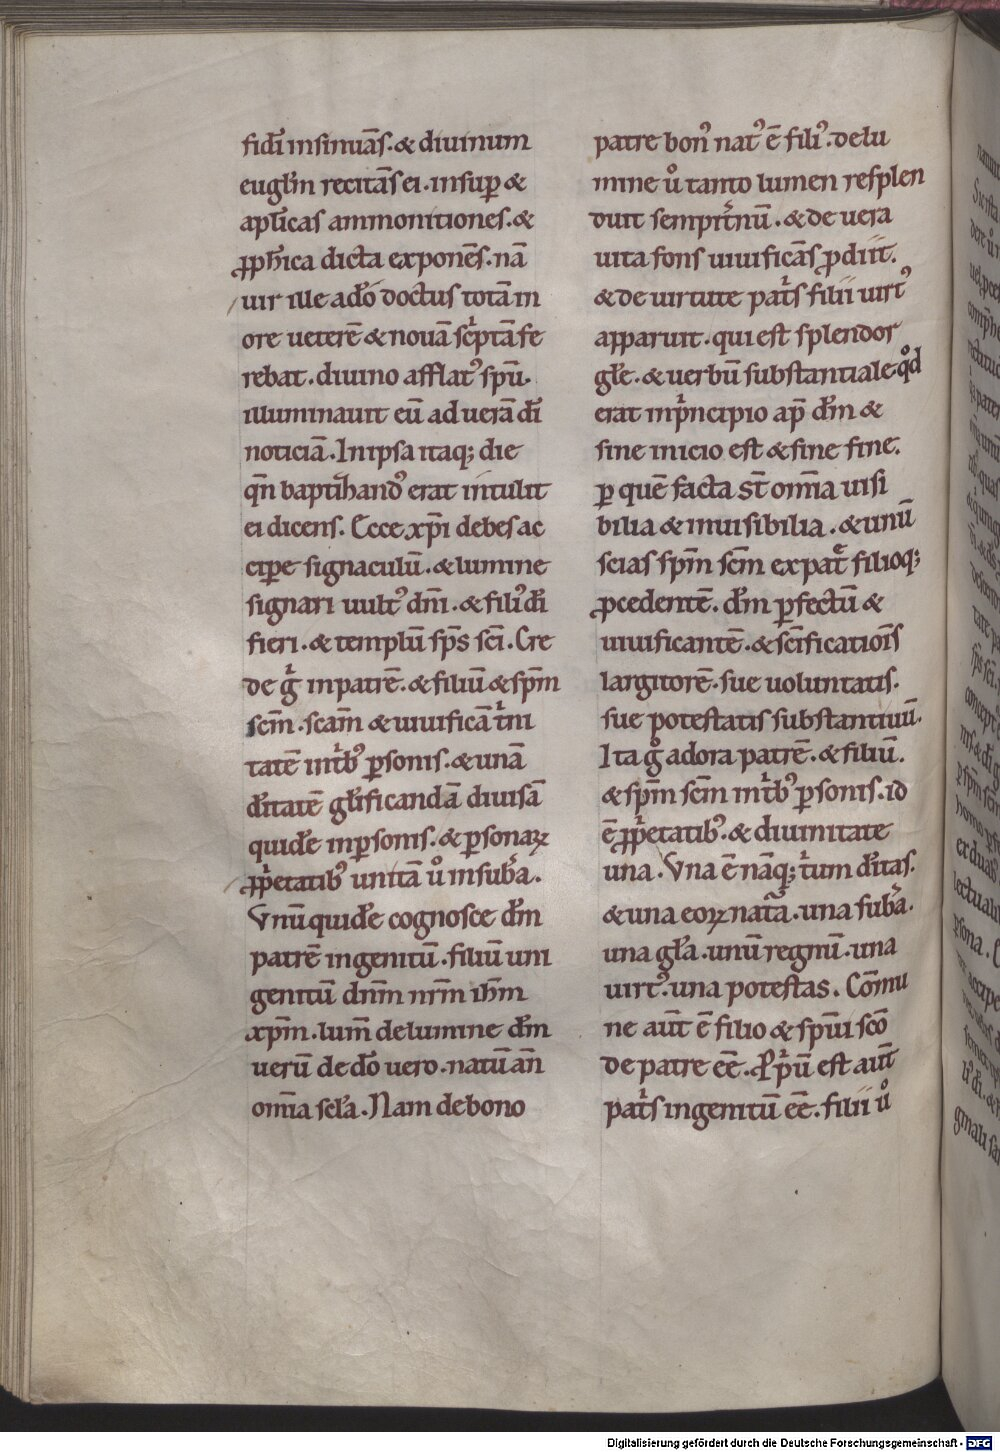 fidei insinuās. & diuinum
euglm̄ recitās ei. insup̄ &
apl̄icas ammonitiones. &
ꝓph̄ica dicta exponēs. nā
uir ille adō doctus totā in
ore ueterē & nouā sc̄ptā fe
rebat. diuino afflatꝰ spū.
illuminauit eū ad uerā dī
noticiā. In ipsa itaq; die
qn̄ baptizandꝰ erat intulit
ei dicens. Ecce xp̄i debes ac
cip̄e signaculū. & lumine
signari uultꝰ dn̄i. & filiꝰ dī
fieri. & templū sp̄s sc̄i. Cre
de gͥ in patrē. & filiū & sp̄m
sc̄m. sc̄am & uiuificā tͥni
tatē in tͥbꝰ ꝑsonis. & unā
dītatē gl̄ificandā diuisā
quidē in ꝑsonis. & ꝑsonaꝝ
ꝓpͥetatibꝰ unitā uͦ in subā.
Vnū quidē cognosce dm̄
patrē ingenitū. filiū uni
genitū dn̄m nr̄m ih̄m
xp̄m. lum̄ de lumine dm̄
uerū de dō uero. natū an̄
omīa sel̄a. Nam de bono
patre bonꝰ natꝰ ē filiꝰ. de lu
mine uͦ tanto lumen resplen
duit sempit̄nū. & de uera
uita fons uiuificās ꝓdiit.
& de uirtute pat̄s filii uirtꝰ
apparuit. qui est splendor
gl̄e. & uerbū substantiale qͦd
erat in pͥncipio ap̄ dm̄ &
sine inicio est & sine fine.
ꝑ quē facta st̄ omīa uisi
bilia & inuisibilia. & unū
scias sp̄m sc̄m ex pat̄ filioq;
ꝓcedentē. dm̄ ꝑfectū &
uiuificantē. & sc̄ificatiōis
largitorē. sue uoluntatis.
sue potestatis substantiuū.
Ita gͦ adora patrē. & filiū.
& sp̄m sc̄m in tͥbꝰ ꝑsonis. id
ē ꝓpͥetatibꝰ. & diuinitate
una. Vna ē nāq; tͥum dītas.
& una eoꝝ natā. una subā.
una gl̄a. unū regnū. una
uirtꝰ. una potestas. Cōmu
ne aūt ē filio & spūi scō
de patre eē. Ꝓpͥū est aūt
pat̄s ingenitū eē. filii uͦ
Digitalisierung gefördert durch die Deutsche Forschungsgemeinschaft - DFG